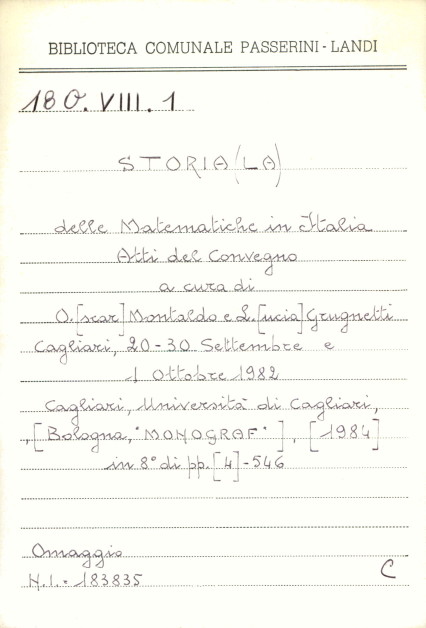 BIBLIOTECA COMUNALE PASSERINI-LANDI
18 O. VIII. 1
STORIA (LA)
delle Matematiche in Italia
Atti del Convegno
a cura di
O.[scar] Montaldo e L.[ucia] Grugnetti
Cagliari, 20-30 Settembre e
1 Ottobre 1982
Cagliari, Università di Cagliari,
,[Bologna, "MONOGRAF"], [1984]
in 8° di pp. [4]-546
Omaggio
N.I. - 183835
C